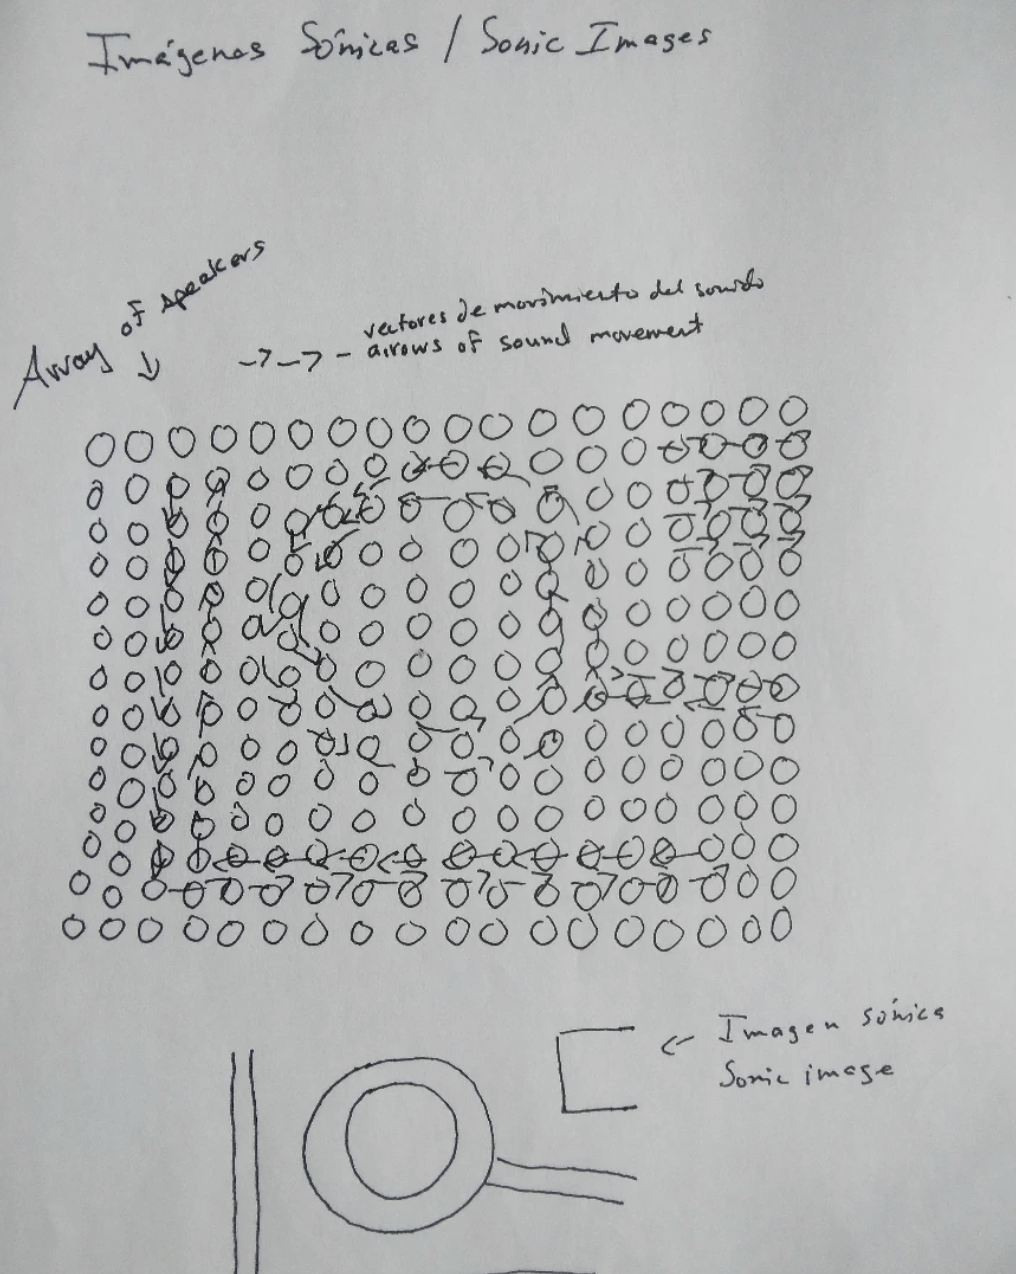 Imágenes Sónicas / Sonic Images
Array of speakers
vectores de movimiento del sonido
arrows of sound movement
Imagen sónica
Sonic image